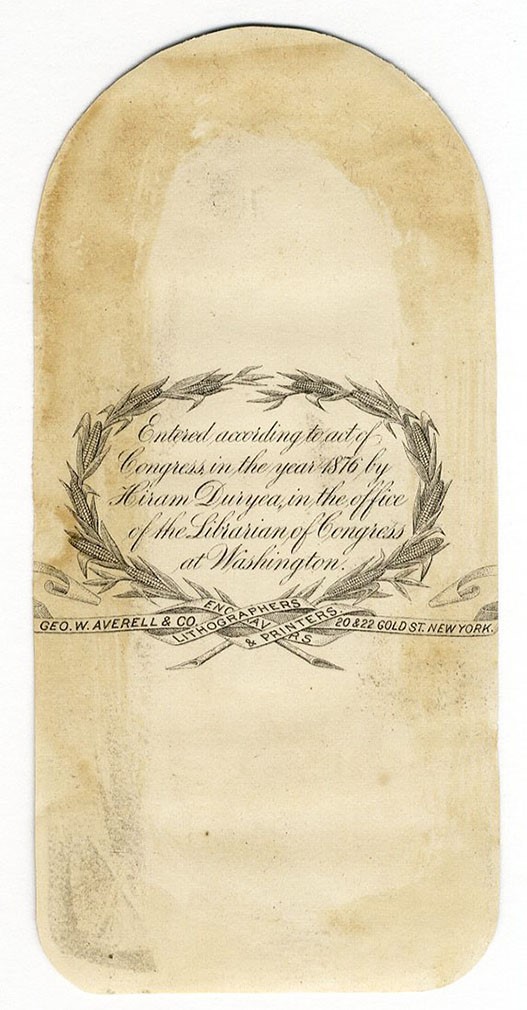 Entered according to act of
Congress, in the year 1876, by
Hiram Duryea, in the office
of the Librarian of Congress
at Washington.
GEO. W. AVERELL & CO. LITHOGRAPHERS ENGRAVERS & PRINTERS. 20 & 22 GOLD ST. NEW YORK.